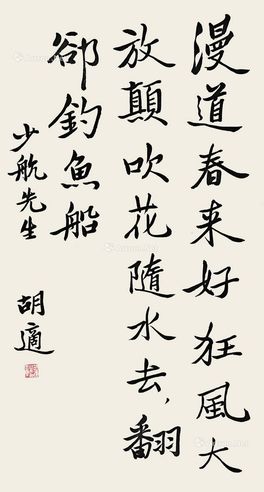 漫道春来好狂風大
放顛吹花隨水去,翻
郤釣魚船
少航先生
胡適